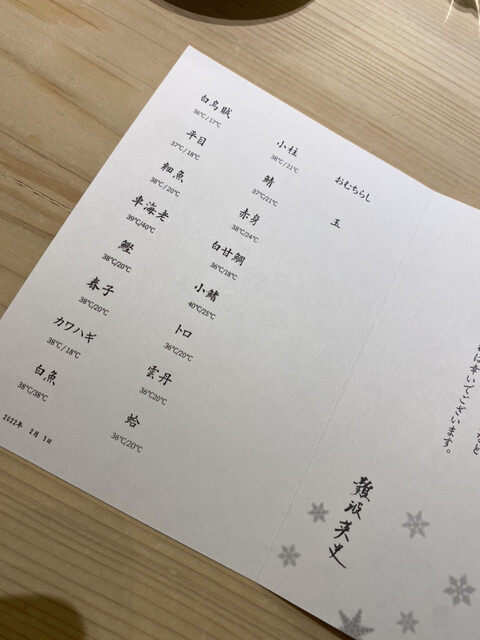 白烏賊
36℃/17℃
平目
37℃/18℃
細魚
38℃/20℃
車海老
39℃/40℃
鰹
38℃/20℃
春子
38℃/20℃
カワハギ
38℃/18℃
白魚
38℃/38℃
小柱
38℃/21℃
鯖
37℃/21℃
赤身
38℃/24℃
白甘鯛
36℃/18℃
小鰭
40℃/25℃
トロ
36℃/20℃
雲丹
36℃20℃
蛤
36℃/20℃
おむちらし
玉
2022年 2月 3日
れば幸いでございます。
難波英史